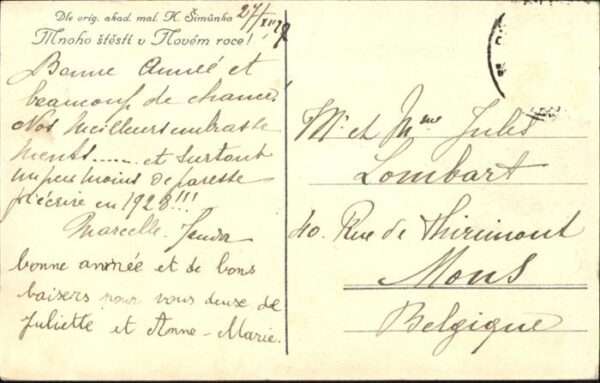 Dle orig. akad. mal. K. Šimůnka
27/XII 27
Mnoho štěstí v Novém roce!
Bonne Année et
beaucoup de chance.
Nos meilleurs embrasse
ments...... et surtout
un peu moins de paresse
d'écrire en 1928 !!!
Marcelle.
bonne année et de bons
baisers pour vous deux de
Juliette et Anne-Marie.
Mr et Mme Jules
Lombart
40. Rue de Thirimont
Mons
Belgique